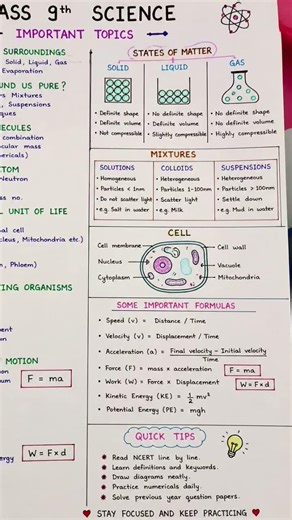 ASS 9th SCIENCE
IMPORTANT TOPICS
SURROUNDINGS
Solid, Liquid, Gas
Evaporation
UND US PURE?
s Mixtures
, Suspensions
ques
ECULES
combination
cular mass
ericals)
TOM
Neutron
ss no.
L UNIT OF LIFE
al cell
cleus, Mitochondria etc.)
m, Phloem)
ING ORGANISMS
ent
on
F MOTION
n
um
F = ma
ergy
W = F×d
STATES OF MATTER
SOLID LIQUID GAS
• Definite shape • No definite shape • No definite shape
• Definite volume • Definite volume • No definite volume
• Not compressible • Slightly compressible • Highly compressible
MIXTURES
SOLUTIONS COLLOIDS SUSPENSIONS
• Homogeneous • Heterogeneous • Heterogeneous
• Particles < 1nm • Particles 1-100nm • Particles > 100nm
• Do not scatter light • Scatter light • Settle down
• e.g. Salt in water • e.g. Milk • e.g. Mud in water
CELL
Cell membrane Cell wall
Nucleus Vacuole
Cytoplasm Mitochondria
SOME IMPORTANT FORMULAS
• Speed (v) = Distance / Time
• Velocity (v) = Displacement / Time
• Acceleration (a) = Final velocity - Initial velocity
Time
• Force (F) = mass × acceleration F = ma
• Work (W) = Force × Displacement W = F×d
• Kinetic Energy (KE) = 1/2 mv²
• Potential Energy (PE) = mgh
QUICK TIPS
Read NCERT line by line.
Learn definitions and keywords.
Draw diagrams neatly.
Practice numericals daily.
Solve previous year question papers.
♥ STAY FOCUSED AND KEEP PRACTICING ♥